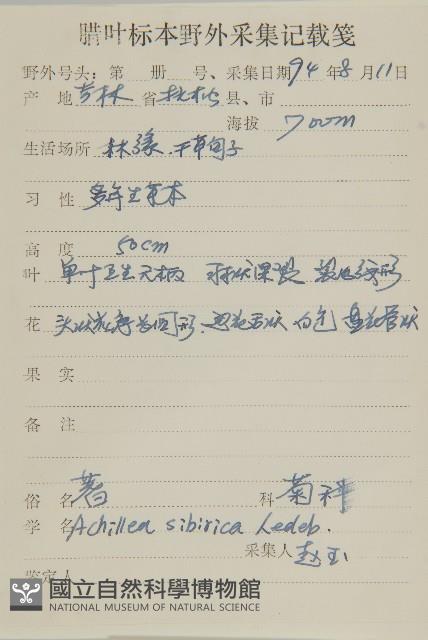 腊叶标本野外采集记载笺
野外号头：第 册 号、采集日期 94 年 8 月 11 日
产 地 吉林 省 抚松 县、市
海拔 700m
生活场所 林缘、干草甸子
习 性 多年生草本
高 度 50cm
叶 单叶互生无柄
花 头状花序 边花舌状 白色 盘花管状
果 实
备 注
俗 名 蓍 科 菊科
学 名 Achillea sibirica Ledeb.
采集人 赵玉
鉴定人
國立自然科學博物館
NATIONAL MUSEUM OF NATURAL SCIENCE